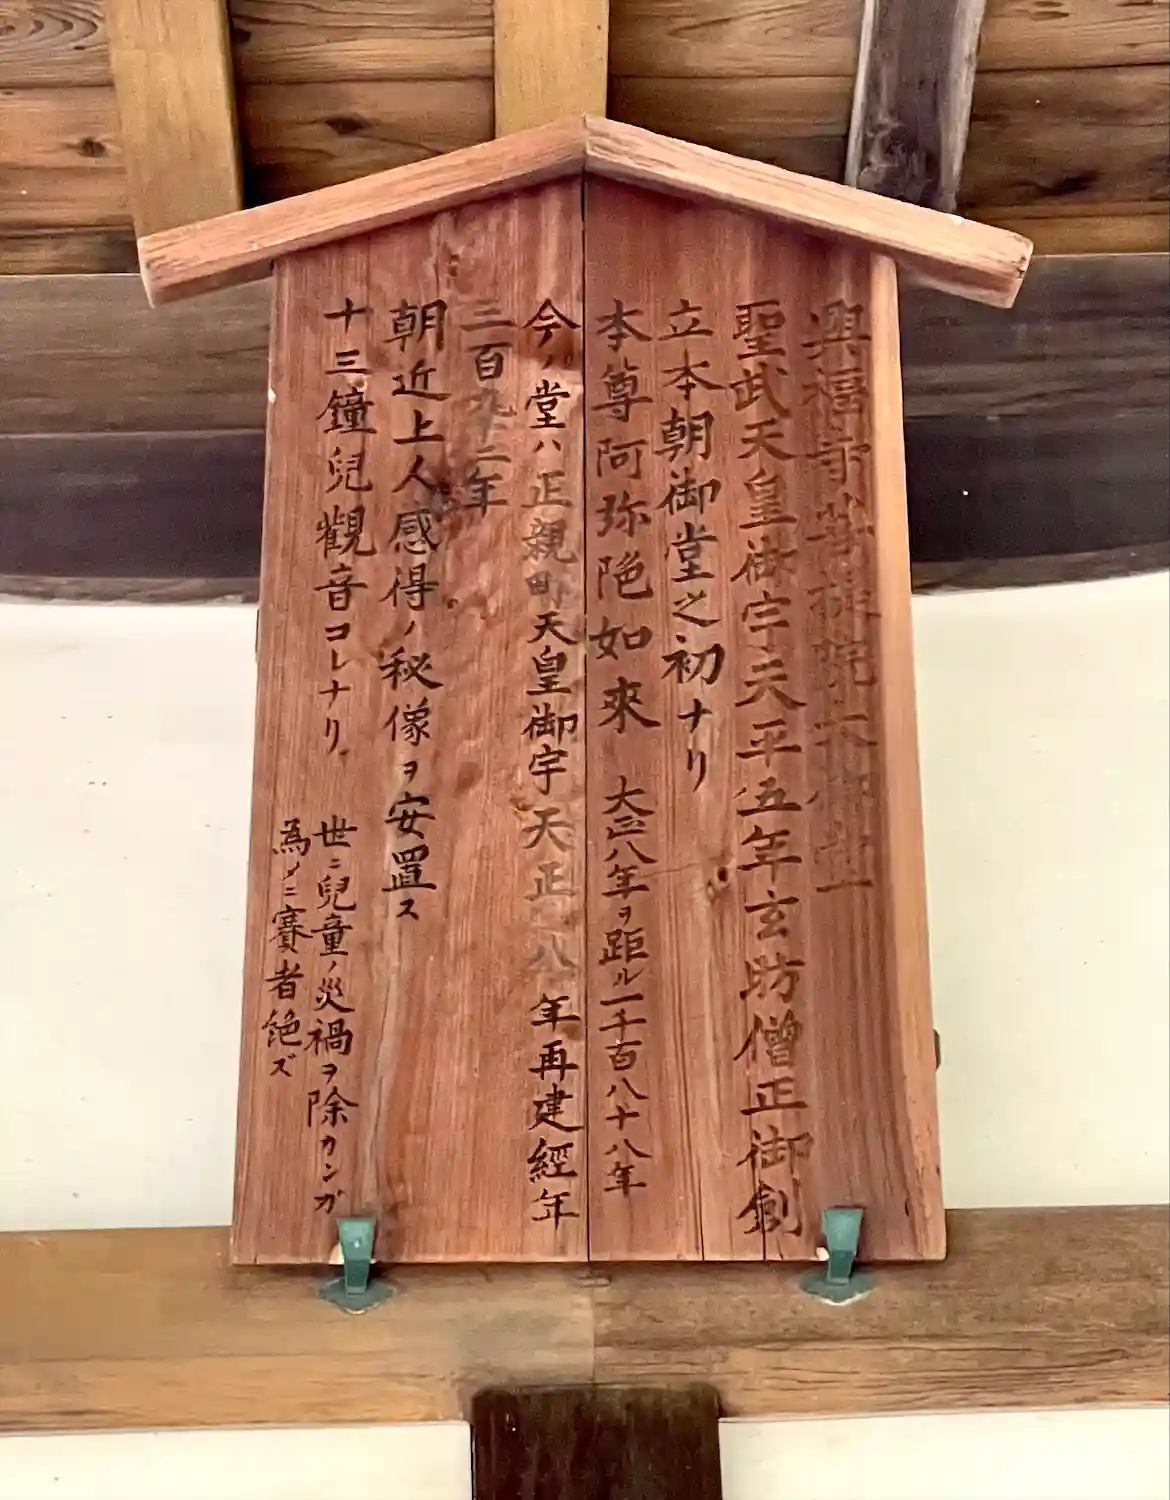 興福寺菩提院大御堂
聖武天皇御宇天平五年玄昉僧正御創
立本朝御堂之初ナリ
本尊阿弥陀如來 大正八年ヲ距ル一千百八十八年
今ノ堂ハ正親町天皇御宇天正八年再建經年
三百九十二年
朝近上人感得ノ秘像ヲ安置ス
十三鐘兒觀音コレナリ
世ニ兒童ノ災禍ヲ除カンガ
為メニ賽者絶ズ